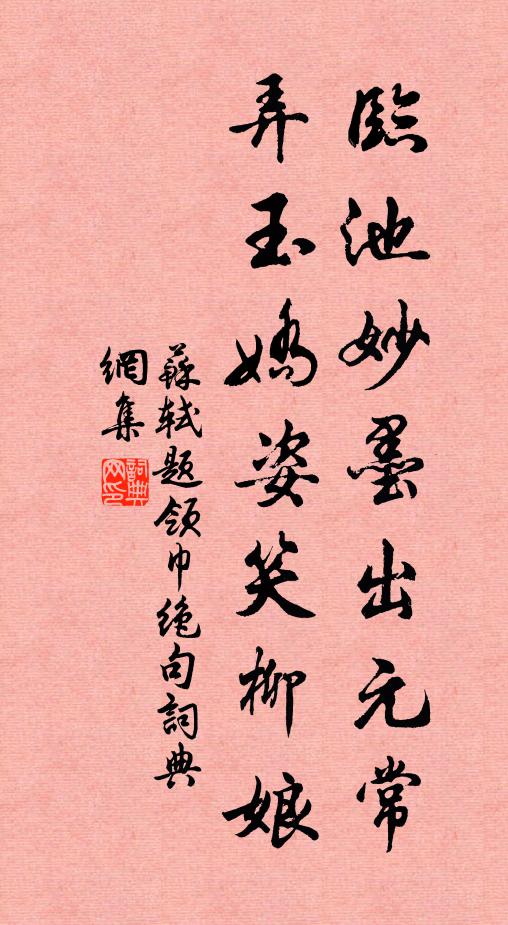 臨池妙墨出元常
弄玉嬌姿笑柳娘
蘇軾題領巾絕句詞典
網集
詞典網印